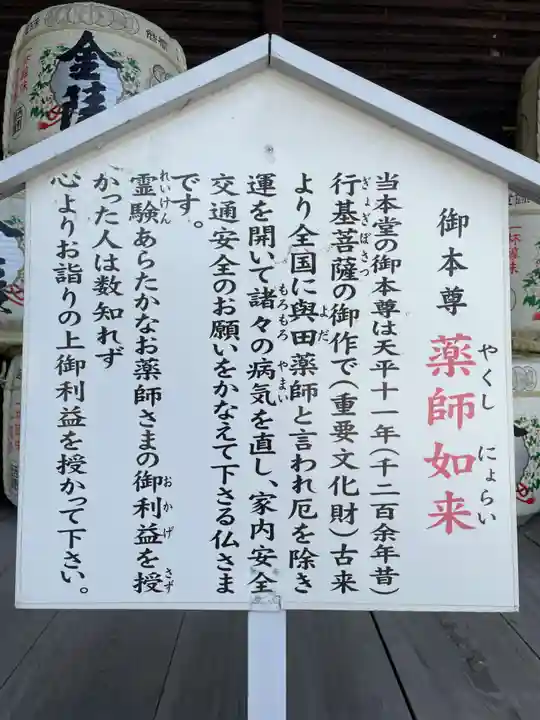 御本尊 薬師如来
やくし にょらい
当本堂の御本尊は天平十一年(千二百余年昔)
行基菩薩の御作で(重要文化財)古来
ぎょぎぼさつ
より全国に與田薬師と言われ厄を除き
よだ
運を開いて諸々の病気を直し、家内安全
もろもろ やまい
交通安全のお願いをかなえて下さる仏さま
です。
霊験あらたかなお薬師さまの御利益を授
れいけん おかげ さず
かった人は数知れず
心よりお詣りの上御利益を授かって下さい。
金陵